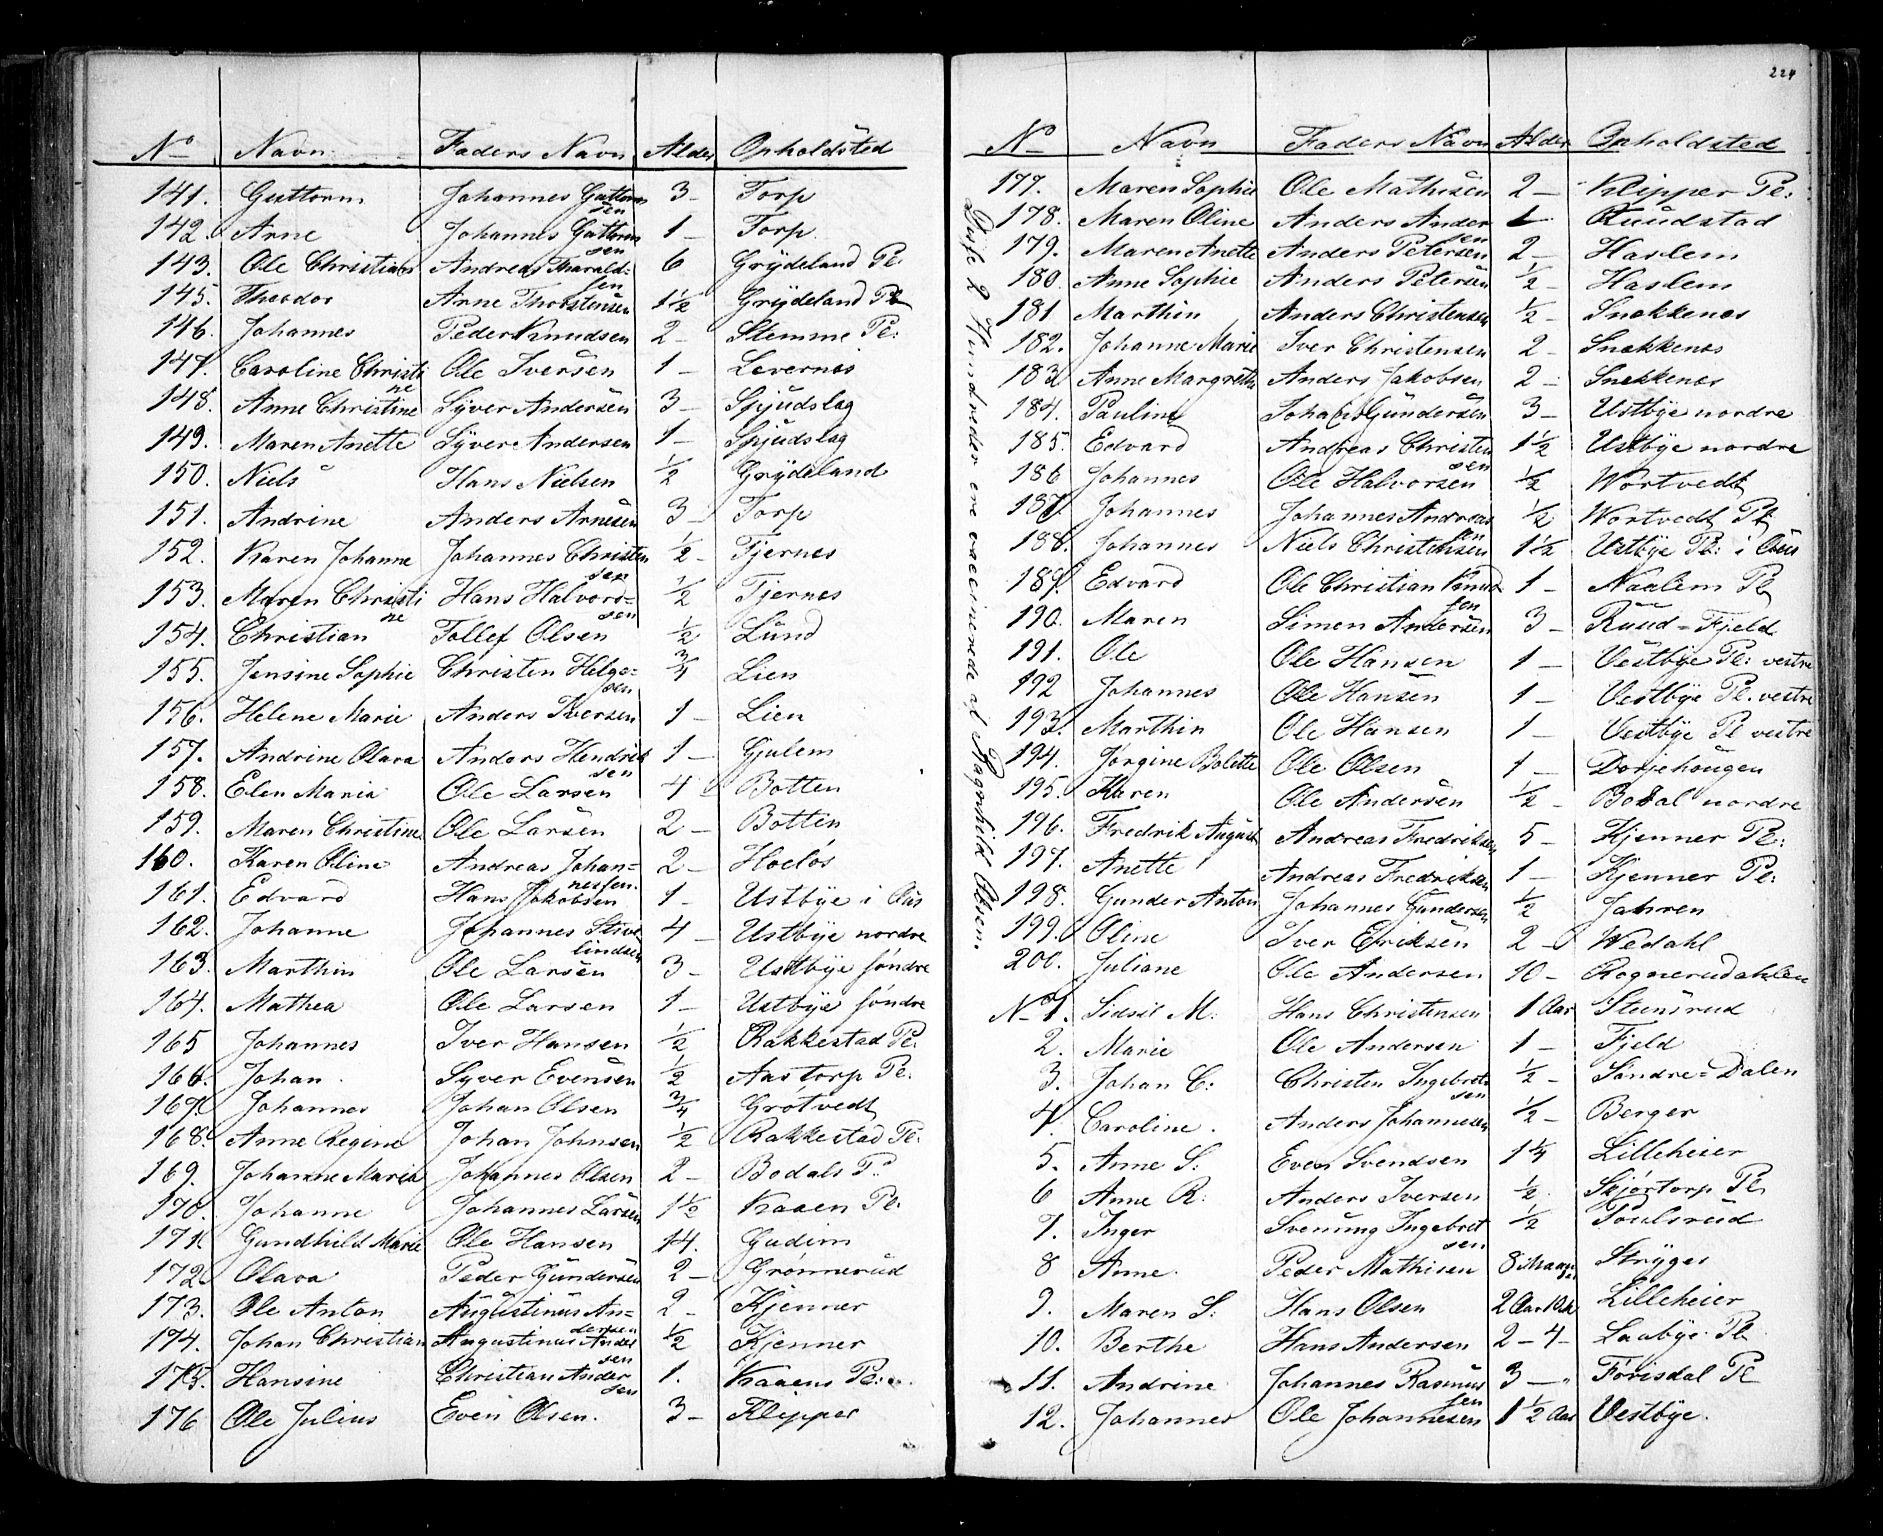 No Navn Faders Navn Alder Opholdsted
141. Guttorm Johannes Guttormsen 3 - Torp
142. Arne Johannes Guttormsen 1 - Torp
143. Ole Christian Andreas Tharaldsen 6 Grydeland Pl.
145. Theodor Arne Thorstensen 1½ Grydeland Pl
146. Johannes Peder Knudsen 2 - Stemme Pl:
147. Caroline Christine Ole Iversen 1 - Levernæs
148. Anne Christine Syver Andersen 3 - Spjudslag
149. Maren Anette Syver Andersen 1 - Spjudslag
150. Niels Hans Nielsen ½ Grydeland
151. Andrine Anders Arnesen 3 - Torp
152. Karen Johanne Johannes Christensen ½ - Tjernes
153. Maren Christine Hans Halvorsen ½ Tjernes
154. Christian Tollef Olsen ½ Lund
155. Jensine Sophie Christen Helgesen ¾ Lien
156. Helene Marie Anders Iversen 1 - Lien
157. Andrine Olava Anders Hendriksen 1 - Gjulem
158. Elen Maria Ole Larsen 4 Botten
159. Maren Christine Ole Larsen 2 - Botten
160. Karen Oline Andreas Johannessen 2 - Hoeløs
161. Edvard Hans Jakobsen 1 - Ustbye i Aas
162. Johanne Johannes 4 - Ustbye nordre
163. Marthin Ole Larsen 3 - Ustbye søndre
164. Mathea Ole Larsen 1 - Ustbye søndre
165 Johannes Iver Hansen ½ Rakkestad Pl.
166. Johan. Syver Evensen ½ Aastorp Pl.
169. Johannes Johan Olsen ¾ Grøtvedt
168. Anne Regine Johan Johnsen ½ Rakkestad Pl.
169. Johanne Maria Johannes Olsen 2 - Bodals P.
170. Johanne Johannes Larsen 1½ Kaaen Pl.
171. Gundhild Marie Ole Hansen 14. Gudim
172. Olava Peder Gundersen 2 - Grønnerud
173. Ole Anton Augustinus Andersen 2 - Kjenner
174. Johan Christian Augustinus Andersen ½ Kjenner
175. Hansine Christian Andersen 1. Kaaens Pl:
176 Ole Julius Even Olsen. 3 - Klipper
224
No Navn Faders Navn Alder Opholdsted
177. Maren Sophie Ole Mathisen 2 - Klipper Pl:
178. Maren Oline Anders Andersen 1 - Ruudstad
179. Maren Anette Anders Petersen 2 - Haslem
180. Anne Sophie Anders Petersen ½ - Haslem
181. Marthin Anders Christensen ½ - Snekkenes
182. Johanne Marie Iver Christensen 2 - Snekkenes
183 Anne Margrethe Anders Jakobsen 2 - Snekkenes
184. Pauline Johan Gundersen 3 - Ustbye nordre
185. Edvard Andreas Christensen 1½ Ustbye nordre
186 Johannes Ole Halvorsen ½ Wortvedt
187. Johannes Johannes Andreassen ½ Wortvedt Pl
188. Johannes Niels Christensen 1½ Ustbye Pl: i Aas
189. Edvard Ole Christian Knudsen 1 - Naalem Pl
190. Maren Simen Andersen 3 - Ruud - Fjeld
191. Ole Ole Hansen 1 - Vestbye Pl: vestre
192 Johannes Ole Hansen 1 - Vestbye Pl. vestre
193. Marthin Ole Hansen 1 - Vestbye Pl vestre
194. Jørgine Bolette Ole Olsen 1 - Dorjehougen
195. Karen Ole Andersen ½ - Bodal nordre
196. Fredrik August Andreas Fredriksen 5 - Kjenner Pl:
197. Anette Andreas Fredriksen 1 - Kjenner Pl:
198. Gunder Anton Johannes Gundersen ½ Jahren
199. Oline Iver Eriksen 2 - Wedahl
200. Juliane Ole Andersen 10 - Rognerudahlen
Disse 2 Hundreder ere vaccinerede af Ragnhild Olsen.
No 1. Sidsil M: Hans Christensen 1 Aar Steensrud
2. Marie Ole Andersen 1 - Fjeld
3. Johan C: Christen Ingebretsen ½ - Søndre-Dalen
4. Caroline. Anders Johannesen ½ - Berger
5. Anne S: Even Svendsen 1¼ Lilleheier
6 Anne R: Anders Iversen ½. Skjørtorp Pl
7. Inger Svenung Ingebretsen ½ Poulsrud
8 Anne. Peder Mathisen 8 Stryger
9. Maren S: Hans Olsen 2 Aar 10 M Lilleheier
10. Berthe Hans Andersen 2 - 4 - Laabye Pl
11. Andrine Johannes Rasmussen 3 - " Forisdal Pl
12. Johannes Ole Johannesen 1½ Aar Vestbye.